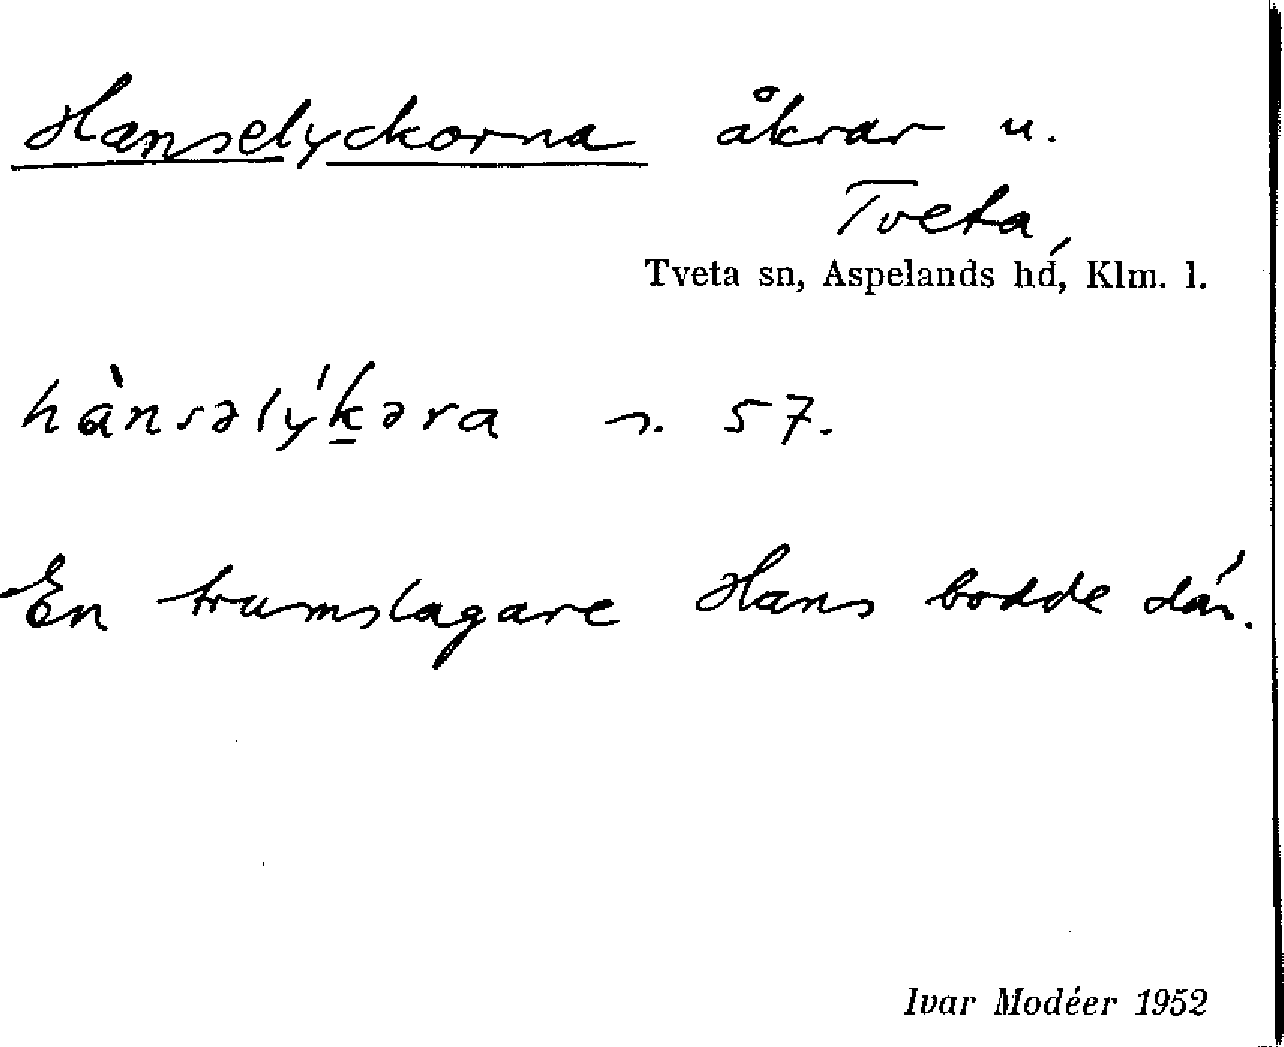 Hanselyckorna åkrar u.
Tveta,
Tveta sn, Aspelands hd, Klm. l.
hànsəlýk̲əra s. 57.
En trumslagare Hans bodde där.
Ivar Modéer 1952